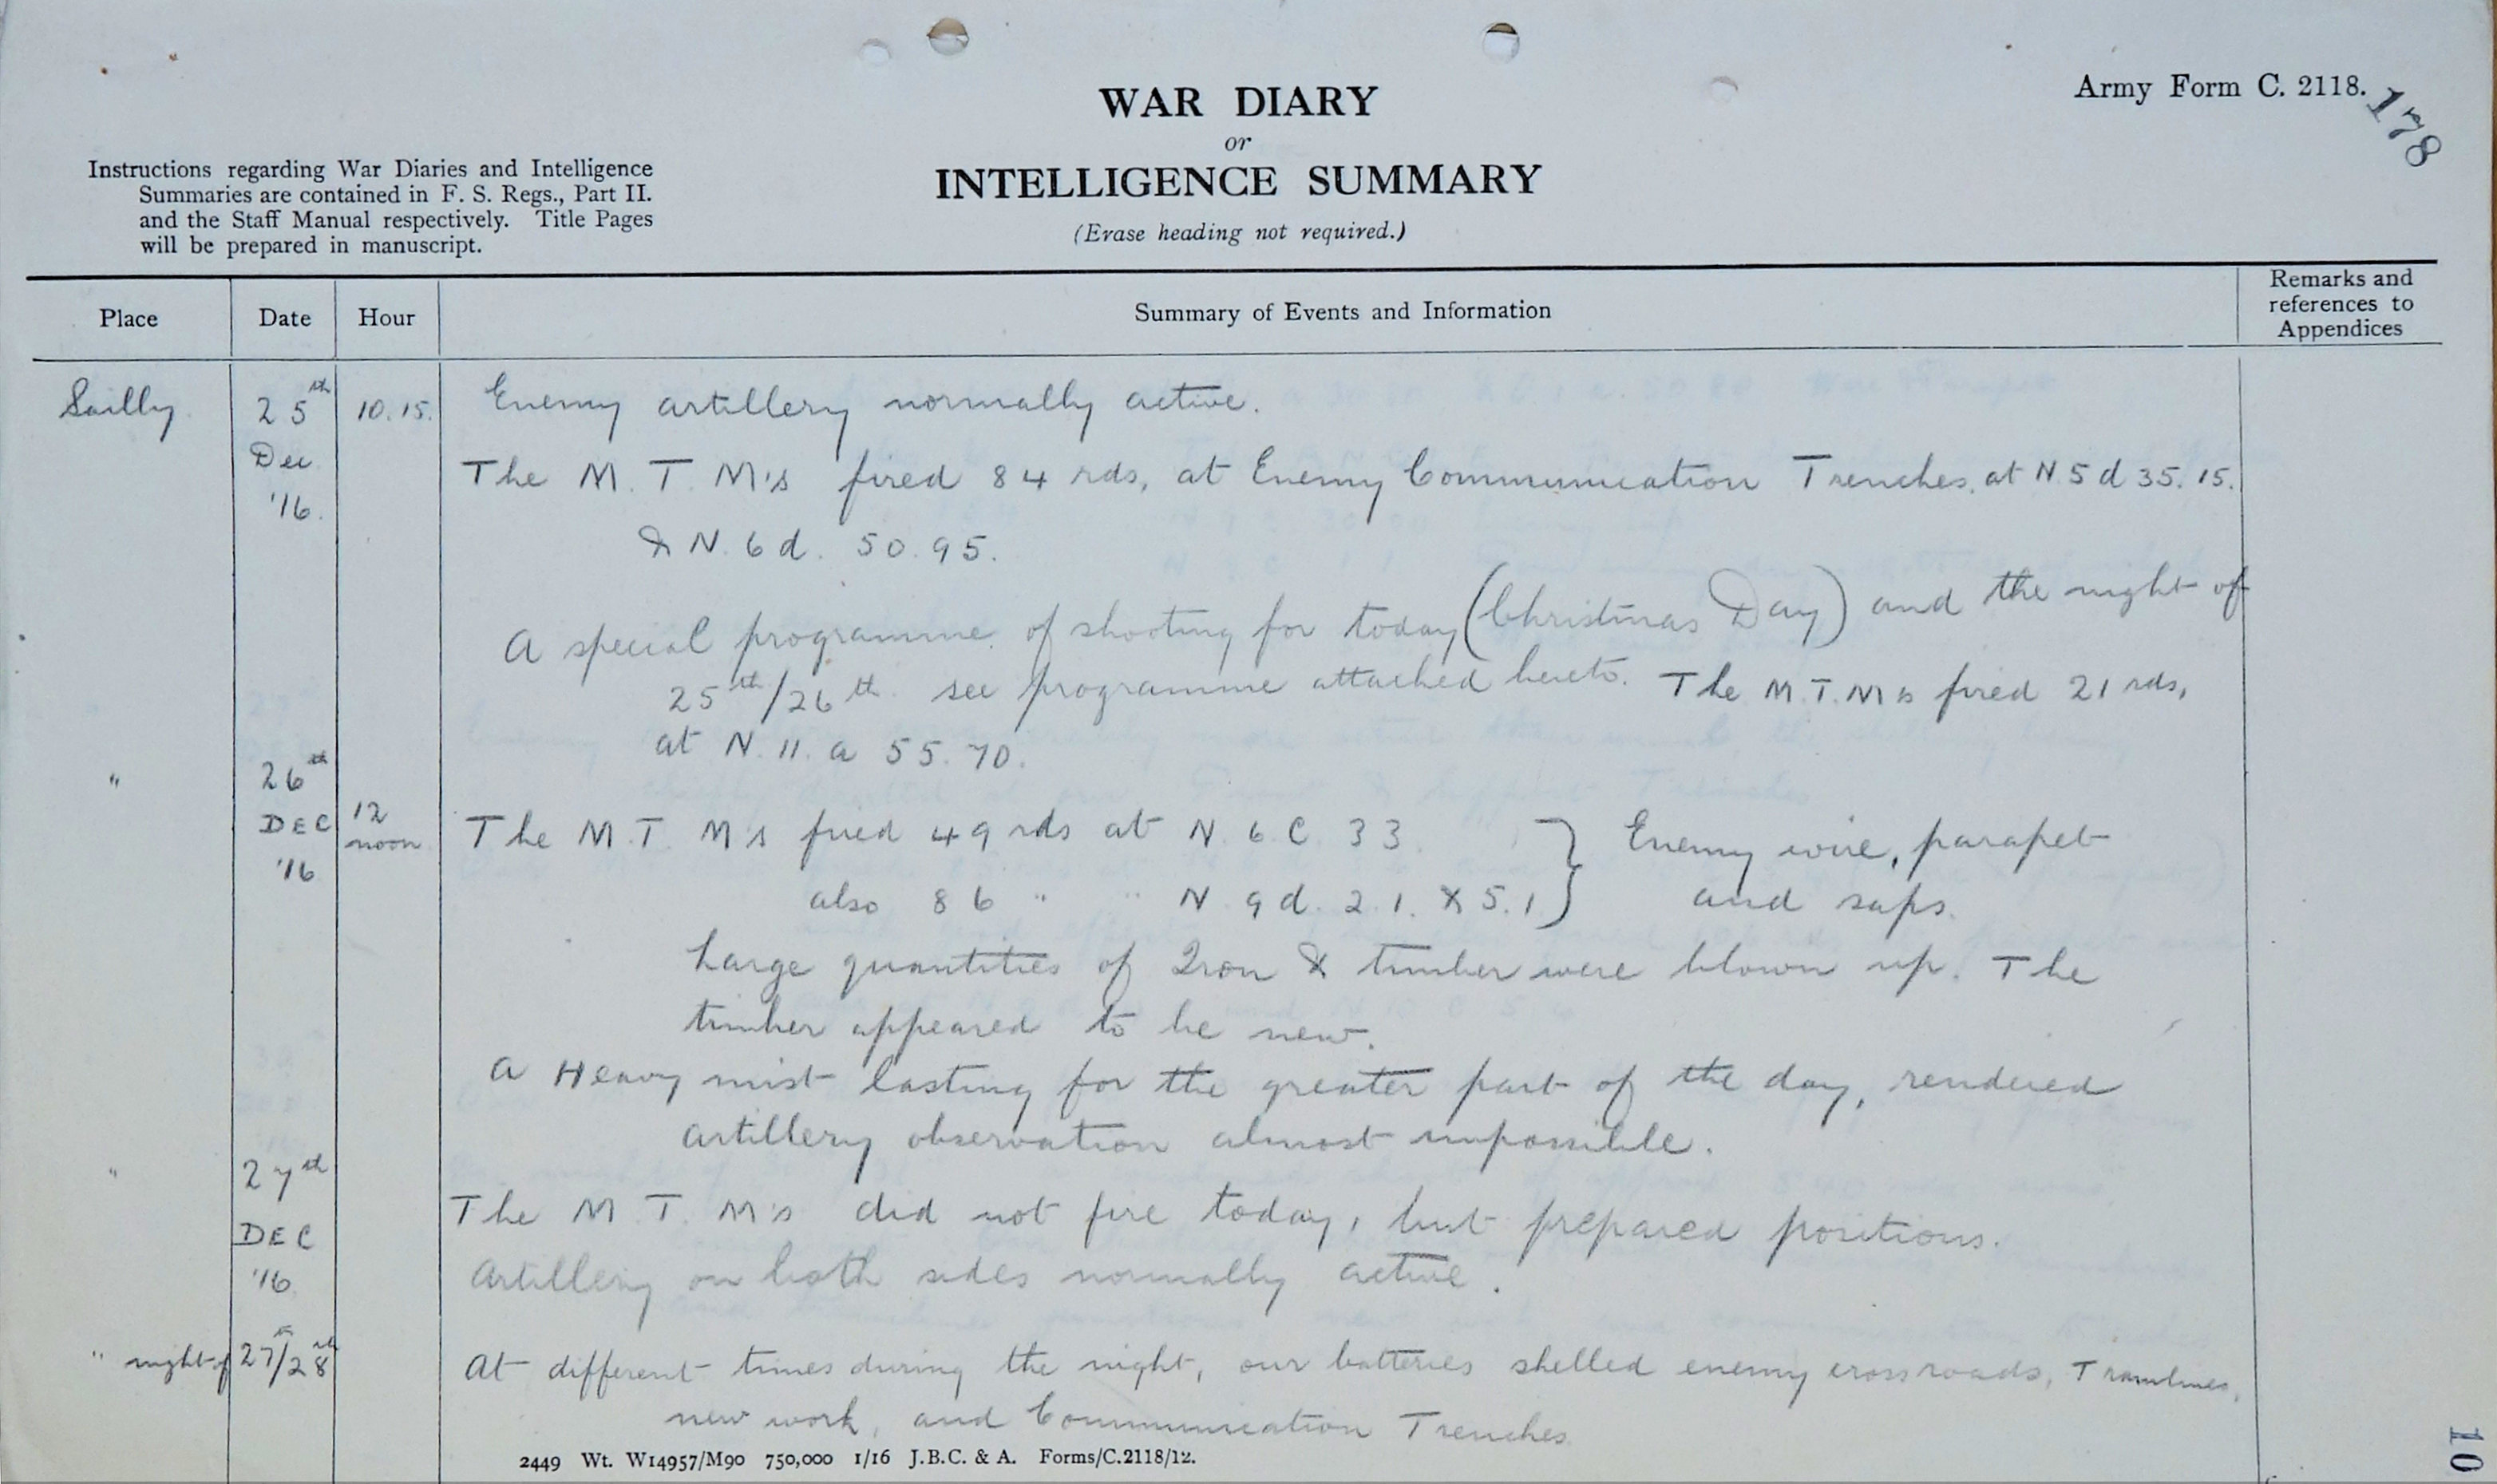 Army Form C. 2118.
178
WAR DIARY
or
INTELLIGENCE SUMMARY
(Erase heading not required.)
Instructions regarding War Diaries and Intelligence
Summaries are contained in F. S. Regs., Part II.
and the Staff Manual respectively. Title Pages
will be prepared in manuscript.
Place Date Hour Summary of Events and Information Remarks and references to Appendices
Sailly 25th Dec '16. 10.15. Enemy artillery normally active.
The M. T. M's fired 84 rds, at Enemy Communication Trenches, at N 5 d 35. 15.
& N. 6 d. 50. 95.
A special programme of shooting for today (Christmas Day) and the night of
25th/26th. see programme attached hereto. The M.T.Ms fired 21 rds,
at N. 11. a 55. 70.
" 26th DEC '16 12 noon The M.T. M's fired 49 rds at N. 6. C. 33. } Enemy wire, parapet
also 86 " " N. 9 d. 2 1. & 5.1 } and saps.
Large quantities of Iron & timber were blown up. The
timber appeared to be new.
A Heavy mist lasting for the greater part of the day, rendered
artillery observation almost impossible.
" 27th DEC '16. The M. T. M's did not fire today, but prepared positions.
Artillery on both sides normally active.
" night of 27th/28th At different times during the night, our batteries shelled enemy crossroads, Tramlines,
new work, and Communication Trenches
2449 Wt. W14957/M90 750,000 1/16 J.B.C. & A. Forms/C.2118/12.
10